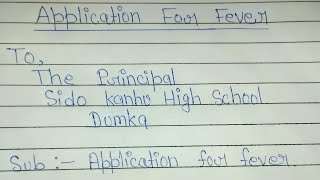 Application For Fever
To,
The Principal
Sido kanhu High School
Dumka
Sub :- Application for fever.